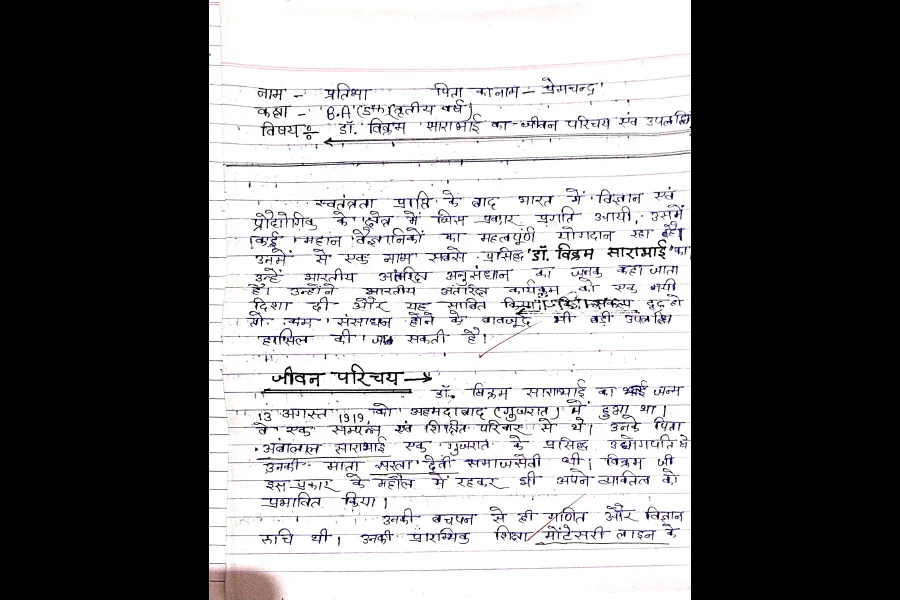 नाम - प्रतिभा पिता का नाम - प्रेमचन्द्र
कक्षा - B.A (5th) (तृतीय वर्ष)
विषय :- डॉ. विक्रम साराभाई का जीवन परिचय एवं उपलब्धि
स्वतंत्रता प्राप्ति के बाद भारत में विज्ञान एवं
प्रौद्योगिक के क्षेत्र में जिस प्रकार प्रगति आयी, उसमें
कई महान वैज्ञानिकों का महत्वपूर्ण योगदान रहा है।
उनमें से एक नाम सबसे प्रसिद्ध डॉ. विक्रम साराभाई का
उन्हें भारतीय अंतरिक्ष अनुसंधान का जनक कहा जाता
है। उन्होंने भारतीय अंतरिक्ष कार्यक्रम को एक नयी
दिशा दी और यह साबित किया कि संकल्प दृढ़ हो
तो कम संसाधन होने के बावजूद भी बड़ी उपलब्धि
हासिल की जा सकती है।
जीवन परिचय →
डॉ. विक्रम साराभाई का जन्म
13 अगस्त 1919 को अहमदाबाद (गुजरात) में हुआ था।
वे एक सम्पन्न एवं शिक्षित परिवार से थे। उनके पिता
अंबालाल साराभाई एक गुजरात के प्रसिद्ध उद्योगपति थे
उनकी माता सरला देवी समाजसेवी थी। विक्रम जी
इस प्रकार के महौल में रहकर ही अपने व्यक्तित्व को
प्रभावित किया।
उनकी बचपन से ही गणित और विज्ञान
रुचि थी। उनकी प्रारम्भिक शिक्षा मोंटेसरी लाइन के